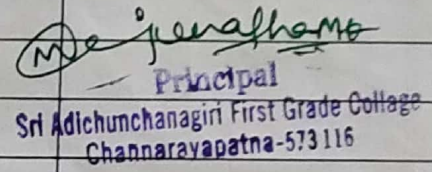 Principal
Sri Adichunchanagiri First Grade Collage
Channarayapatna-573116